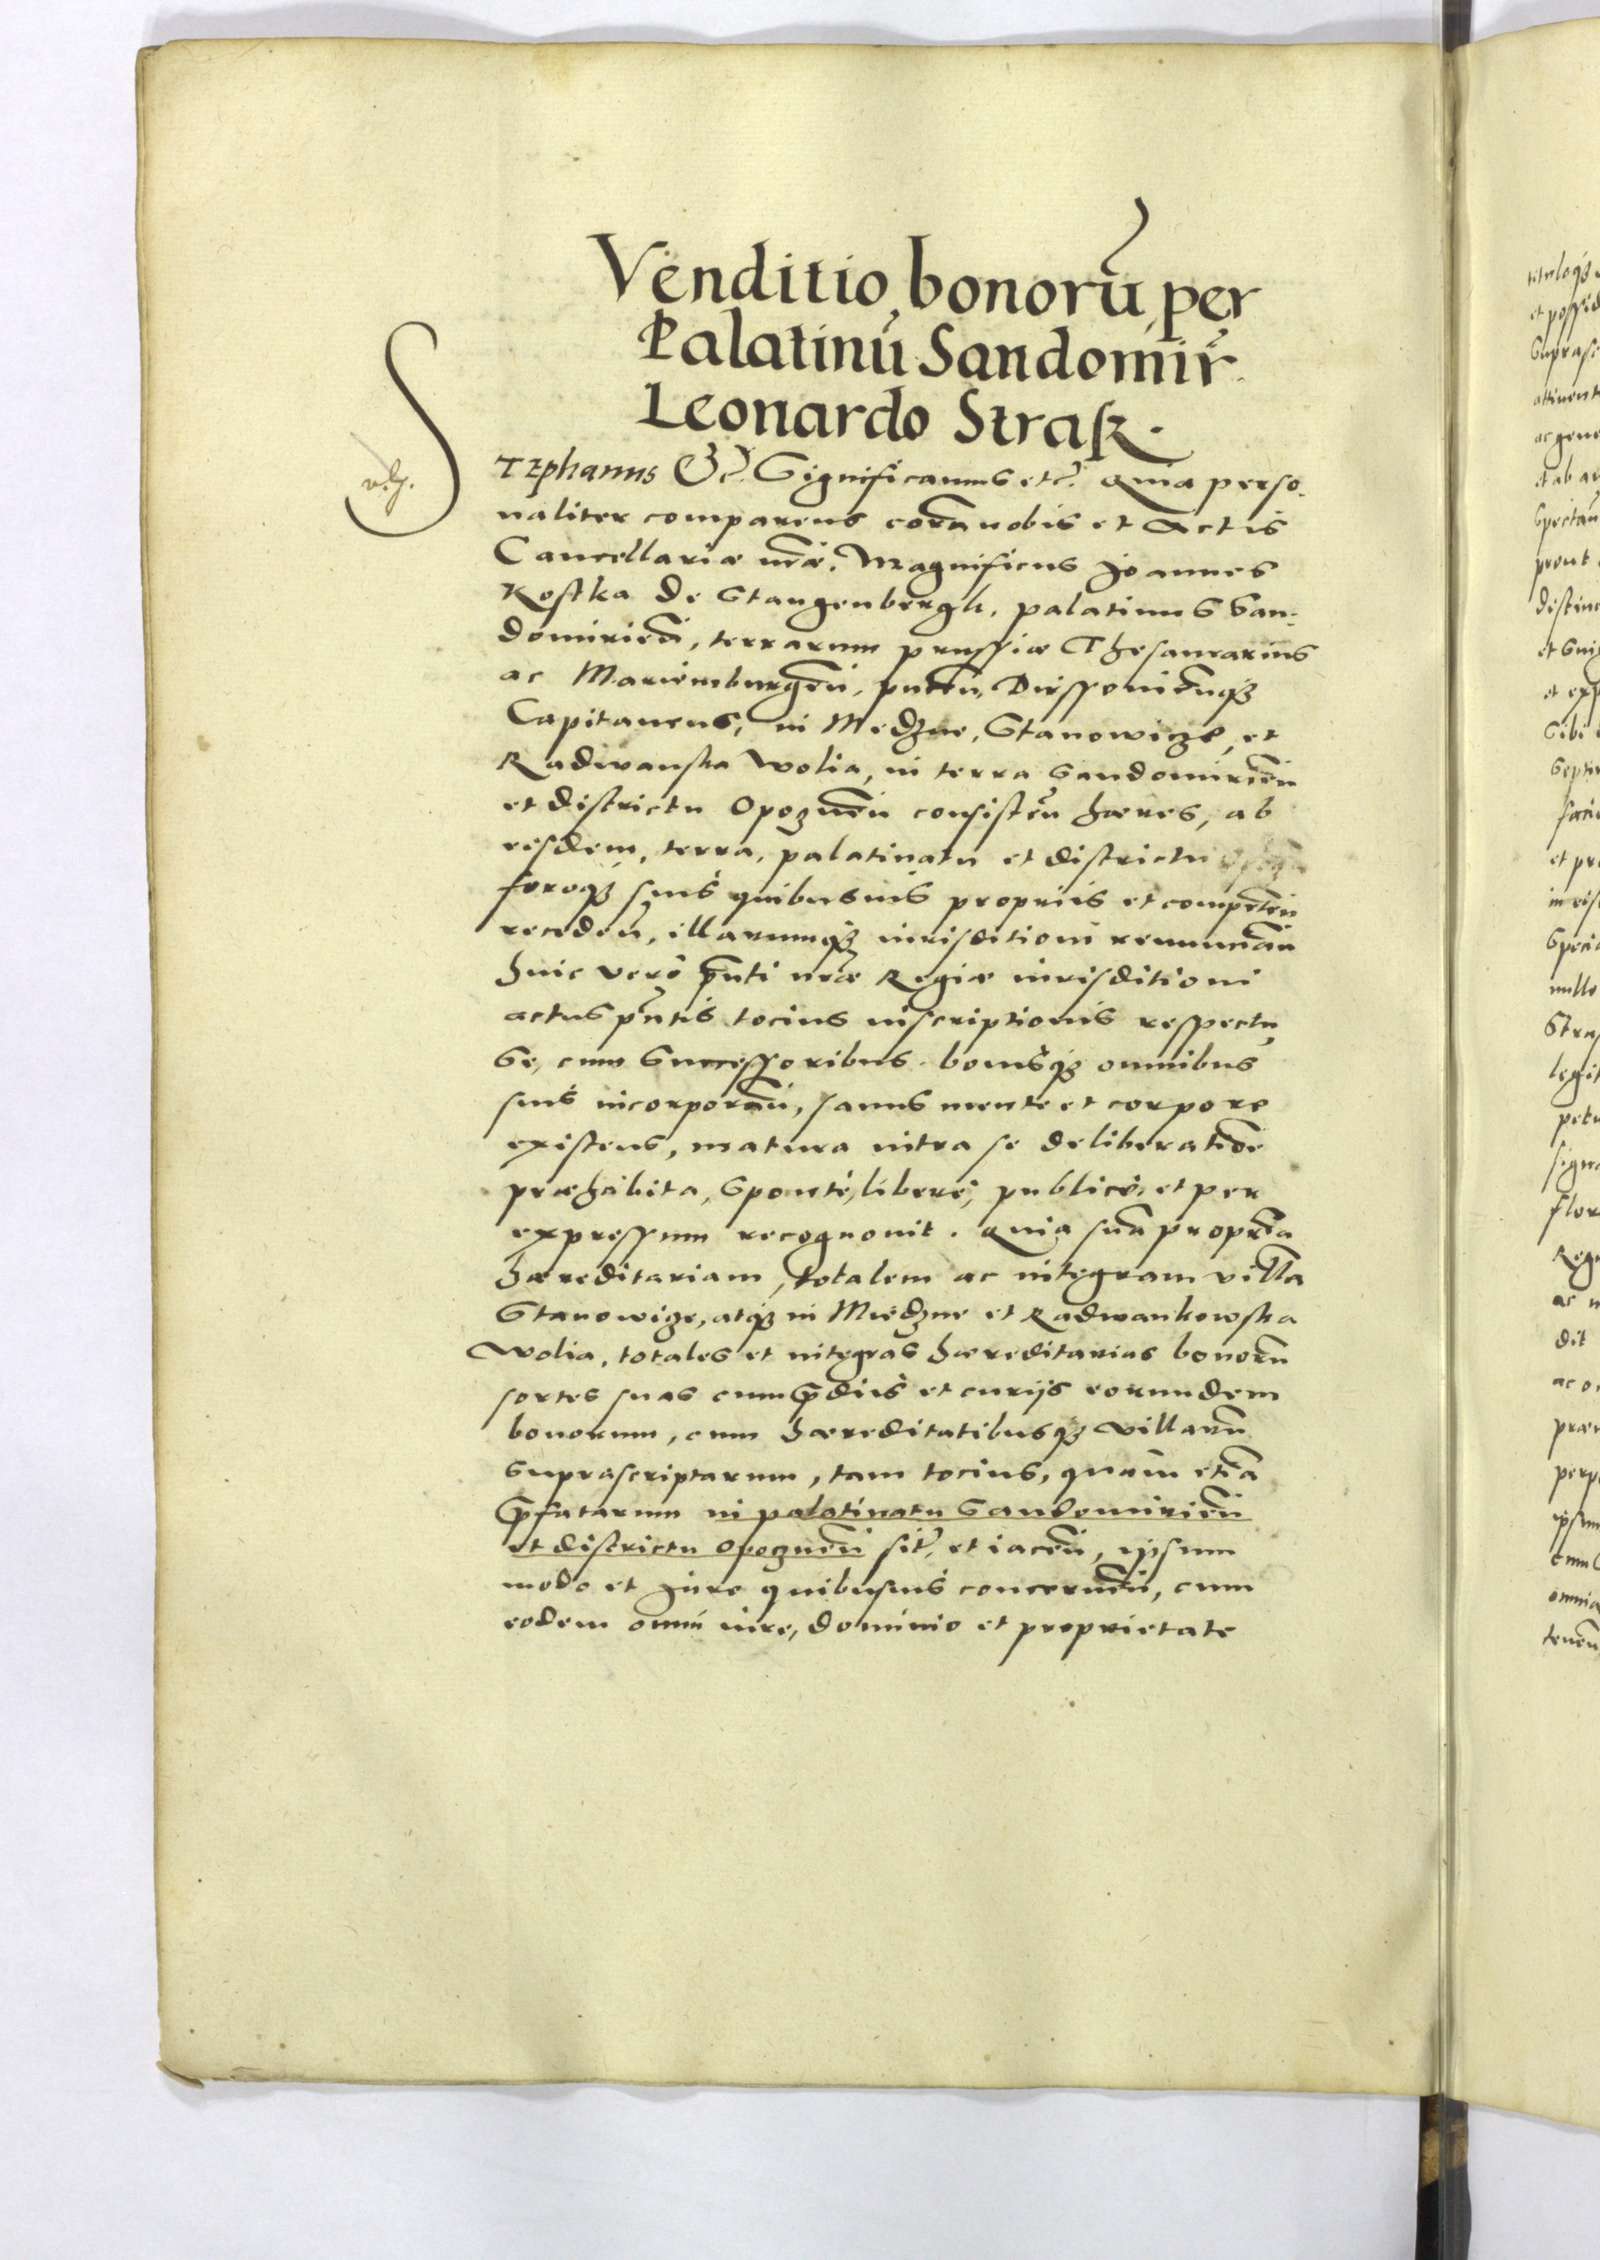 Venditio bonorũ per
Palatinũ Sandomir̃.
Leonardo Strasz.
STEphanus &c̃. Significamus etc̃. Quia perso-
naliter comparens corã nobis et Actis
Cancellariæ nr̃æ. Magnificus Joannes
Kostka de Stangenbergk, palatinus San-
domirieñ, terrarum prussiæ Thesaurarius
ac Mariemburgeñ, puceñ, Dirssouieñq3
Capitaneus, in Medzne, Stanowicze, et
Radwanska Wolia, in terra Sandomirieñ
et districtu Opoczneñ consisteñ hæres, ab
eisdem, terra, palatinatu et districtu
foroq3 suis quibusuis propriis et competeñ
recedeñ, illarumq3 iurisditioni renunciañ
huic verò p̃nti nr̃æ Regiæ iurisditioni
actus p̃ntis tocius inscriptionis respectu,
se, cum Successoribus bonisq3 omnibus
suis incorporañ, sanus mente et corpore
existens, matura intra se deliberatiõe
præhabita, sponte, libere, publice, et per
expressum recognouit. Quia suã propriã
hæreditariam, totalem ac integram villã
Stanowicze, atq3 in Miedzne et Radwankowska
Wolia, totales et integras hæreditarias bonorũ
sortes suas cum p̃diis et curijs eorundem
bonorum, cum hæreditatibusq3 villarũ
suprascriptarum, tam tocius, quàm etiã
p̃fatarum in palatinatu Sandomirieñ
et districtu Opoczneñ sit̃, et iaceñ, ipsum
modo et Jure quibusuis concerneñ, cum
eodem omni iure, dominio et proprietate
tituloq3
et possid
Suprasc
attinent
ac gene
et ab an
Spectañ
prout
distinc
et Suis
et exp
Sibi
Septi
faci
et pr
in eis
Specia
nullo
Stras
legit
petu
signa
flor
Reg
ac
dit
ac o
præ
perp
ipsum
cum
omnia
teneñ